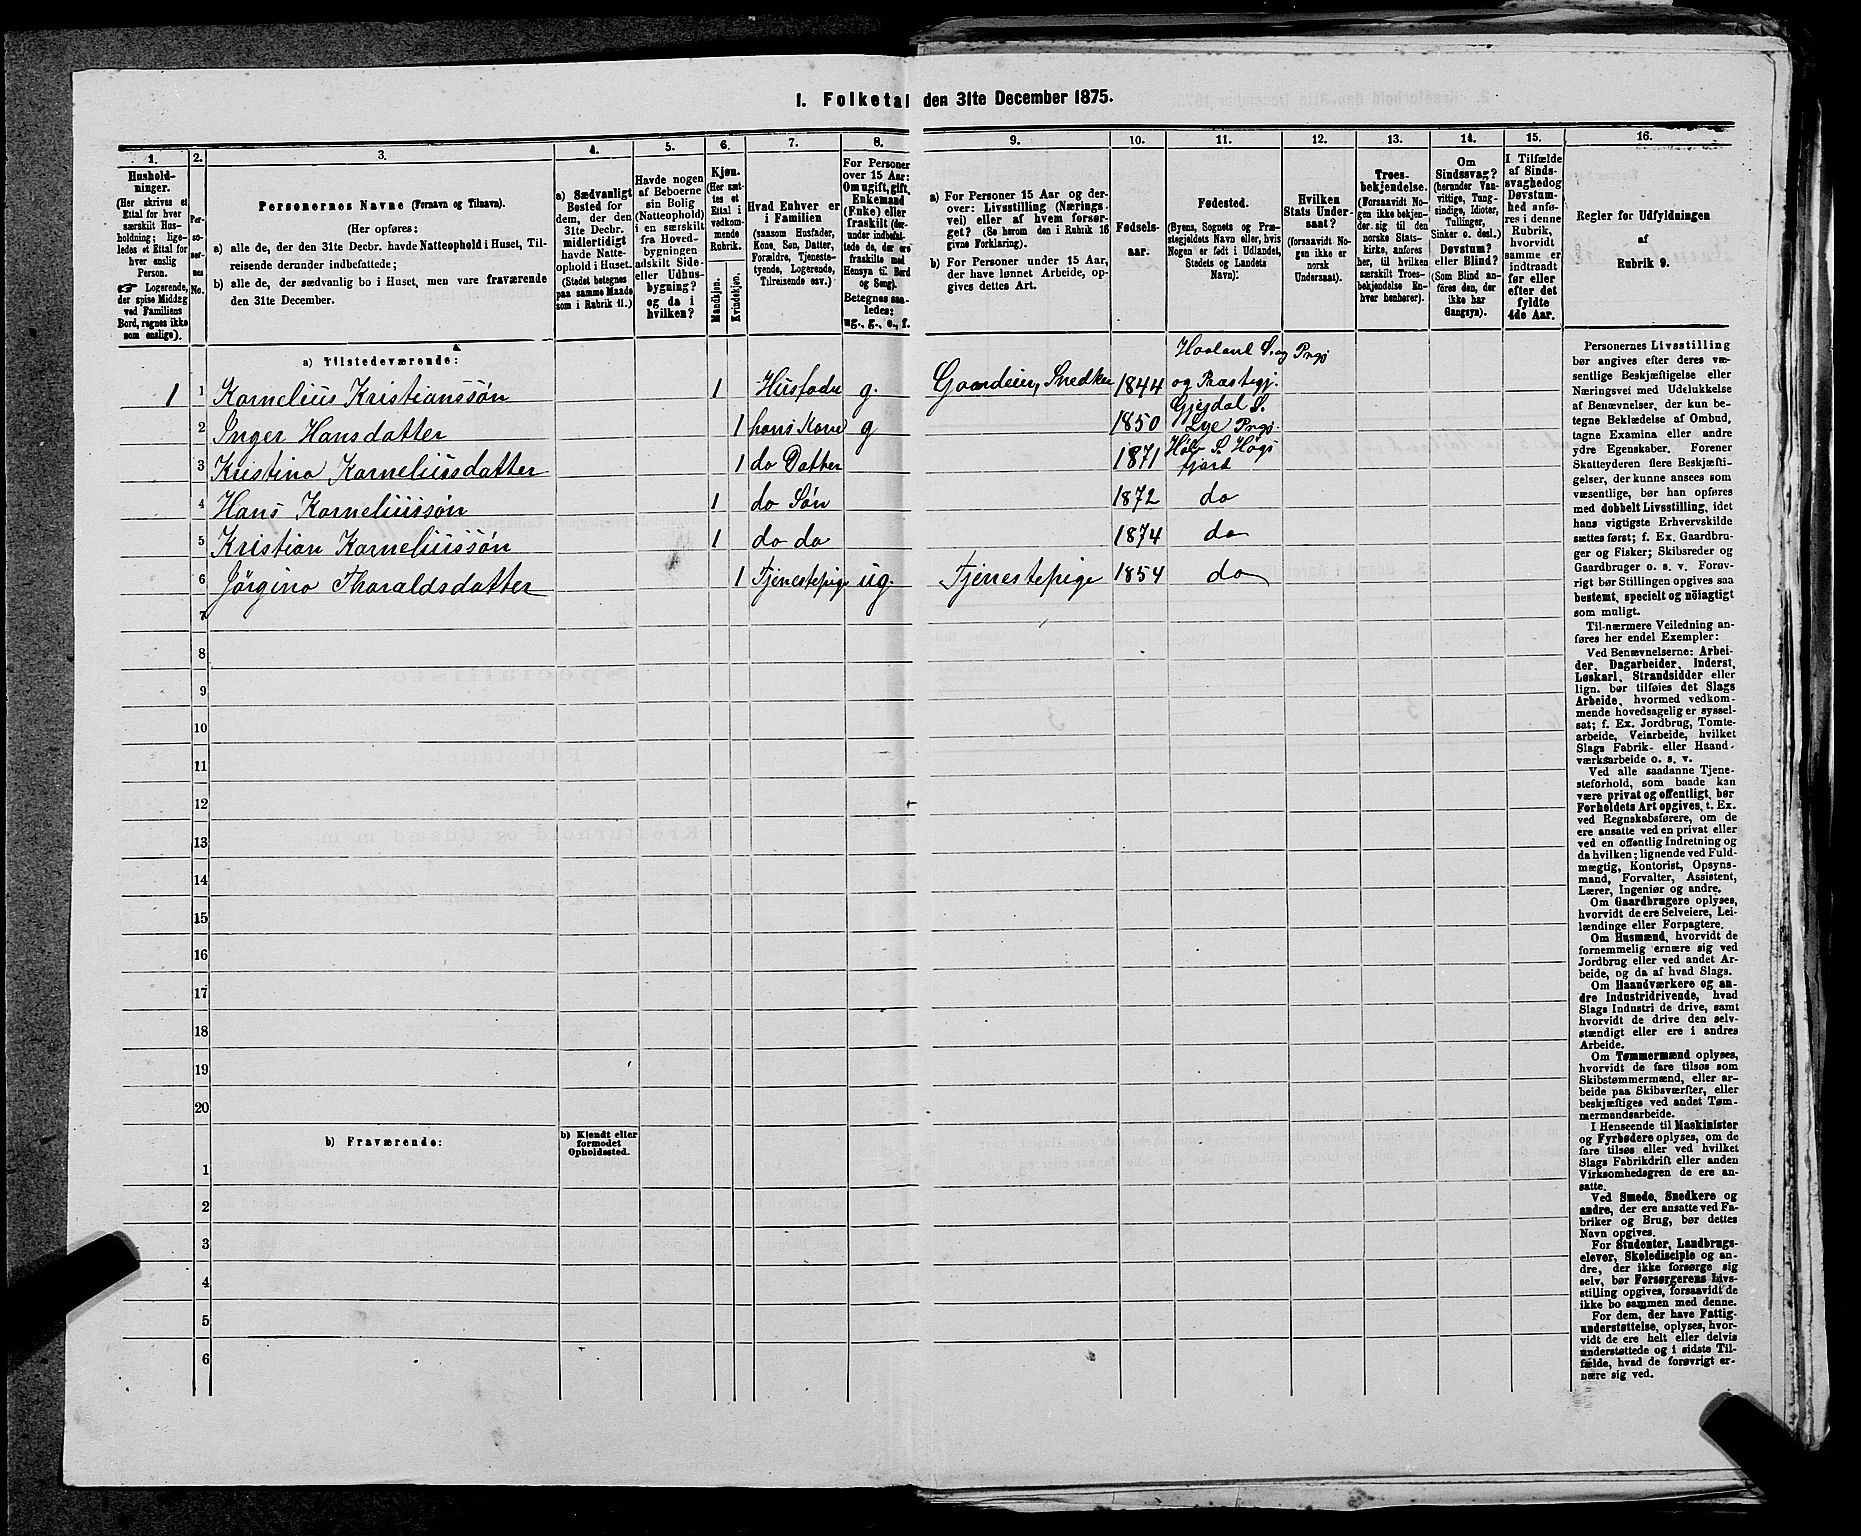 1. Folketal den 31te December 1875.
1. 2. 3. 4. 5. 6. 7. 8. 9. 10. 11. 12. 13. 14. 15. 16.
Hushold-
ninger.
(Her skrives et
Ettal for hver
særskilt Hus-
holdning; lige-
ledes et Ettal for
hver enslig
Person.
☞ Logerende,
der spise Middag
ved Familiens
Bord, regnes ikke
som enslige).
Per-
so-
ner-
nes
No.
Personernes Navne (Fornavn og Tilnavn).
(Her opføres:
a) alle de, der den 31te Decbr. havde Natteophold i Huset, Til-
reisende derunder indbefattede;
b) alle de, der sædvanlig bo i Huset, men vare fraværende
den 31te December.
a) Sædvanligt
Bosted for
dem, der den
31te Decbr.
midlertidigt
havde Natte-
ophold i Huset.
(Stedet betegnes
paa samme Maade
som i Rubrik 11.)
Havde nogen
af Beboerne
sin Bolig
(Natteophold)
i en særskilt
fra Hoved-
bygningen
adskilt Side-
eller Udhus-
bygning?
og da i
hvilken?
Kjøn.
(Her sæt-
tes et
Ettal i
vedkom-
mende
Rubrik.
Mandkjøn.
Kvindekjøn.
Hvad Enhver er
i Familien
(saasom Husfader,
Kone, Søn, Datter,
Forældre, Tjeneste-
tyende, Logerende,
Tilreisende osv.)
For Personer
over 15 Aar:
Om ugift, gift,
Enkemand
(Enke) eller
fraskilt (der-
under indbefat-
tede de, der ere
fraskilte med
Hensyn til Bord
og Seng).
Betegnes saa-
ledes:
ug., g., e., f.
a) For Personer 15 Aar og der-
over: Livsstilling (Nærings-
vei) eller af hvem forsør-
get? (Se herom den i Rubrik 16
givne Forklaring).
b) For Personer under 15 Aar,
der have lønnet Arbeide, op-
gives dettes Art.
Fødsels-
aar.
Fødested.
(Byens, Sognets og Præ-
stegjeldets Navn eller, hvis
Nogen er født i Udlandet,
Stedets og Landets
Navn).
Hvilken
Stats Under-
saat?
(forsaavidt No-
gen ikke er
norsk
Undersaat).
Troes-
bekjendelse.
(Forsaavidt No-
gen ikke bekjen-
der sig til den
norske Stats-
kirke, anføres
her, til hvilken
særskilt Troes-
bekjendelse En-
hver henhører).
Om
Sindssvag?
(herunder Van-
vittige, Tung-
sindige, Idioter,
Tullinger,
Sinker o. desl.)
Døvstum?
eller Blind?
(Som Blind an-
føres den, der
ikke har
Gangsyn).
I Tilfælde
af Sinds-
svaghed og
Døvstum-
hed anfø-
res i denne
Rubrik,
hvorvidt
samme er
indtraadt
før eller
efter det
fyldte
4de Aar.
Regler for Udfyldningen
af
Rubrik 9.
a) Tilstedeværende:
Haaland S. og Prgj
1 1 Kornelius Kristianssøn 1 Husfader g. Gaardeier, Snedker 1844 og Præstegj.
Gjesdal S.
2 Inger Hansdatter 1 hans Kone g 1850 Lye Prgj.
Høle S. Høgs
3 Kristina Korneliusdatter 1 do Datter 1871 fjord
4 Hans Korneliussøn 1 do Søn 1872 do
5 Kristian Korneliussøn 1 do do 1874 do
6 Jørgina Tharaldsdatter 1 Tjenestepige ug. Tjenestepige 1854 do
7
8
9
10
11
12
13
14
15
16
17
18
19
20
b) Fraværende:
b) Kjendt eller
formodet
Opholdssted.
1
2
3
4
5
6
Personernes Livsstilling
bør angives efter deres væ-
sentlige Beskjæftigelse eller
Næringsvei med Udelukkelse
af Benævnelser, der kun be-
tegne Beklædelse af Ombud,
tagne Examina eller andre
ydre Egenskaber. Forener
Skatteyderen flere Beskjæfti-
gelser, der kunne ansees som
væsentlige, bør han opføres
med dobbelt Livsstilling, idet
hans vigtigste Erhvervskilde
sættes først; f. Ex. Gaardbru-
ger og Fisker; Skibsreder og
Gaardbruger o. s. v. Forøv-
rigt bør Stillingen opgives saa
bestemt, specielt og nøiagtigt
som muligt.
Til nærmere Veiledning an-
føres her endel Exempler:
Ved Benævnelserne: Arbei-
der, Dagarbeider, Inderst,
Løskarl, Strandsidder eller
lign. bør tilføies det Slags
Arbeide, hvormed vedkom-
mende hovedsagelig er syssel-
sat; f. Ex. Jordbrug, Tomte-
arbeide, Veiarbeide, hvilket
Slags Fabrik- eller Haand-
værksarbeide o. s. v.
Ved alle saadanne Tjene-
steforhold, som baade kan
være privat og offentligt, bør
Forholdets Art opgives, t. Ex.
ved Regnskabsførere, om de
ere ansatte ved en privat eller
ved en offentlig Indretning og
da hvilken; lignende ved Fuld-
mægtig, Kontorist, Opsyns-
mand, Forvalter, Assistent,
Lærer, Ingeniør og andre.
Om Gaardbrugere oplyses,
hvorvidt de ere Selveiere, Lei-
lændinge eller Forpagtere.
Om Husmænd, hvorvidt de
fornemmelig ernære sig ved
Jordbrug eller ved andet Ar-
beide, og da af hvad Slags.
Om Haandværkere og an-
dre Industridrivende, hvad
Slags Industri de drive, samt
hvorvidt de drive den selv-
stændigt eller ere i andres
Arbeide.
Om Tømmermænd oplyses,
hvorvidt de fare tilsøs som
Skibstømmermænd, eller ar-
beide paa Skibsværfter, eller
beskjæftiges ved andet Tøm-
mermandsarbeide.
I Henseende til Maskinister
og Fyrbødere oplyses, om de
fare tilsøs eller ved hvilket
Slags Fabrikdrift eller anden
Virksomhedsgren de ere an-
satte.
Ved Smede, Snedkere og
andre, der ere ansatte ved Fa-
briker og Brug, bør dettes
Navn opgives.
For Studenter, Landbrugs-
elever, Skoledisciple og an-
dre, der ikke forsørge sig
selv, bør Forsørgerens Livs-
stilling opgives, forsaavidt de
ikke bo sammen med denne.
For dem, der have Fattig-
understøttelse, oplyses, hvor-
vidt de ere helt eller delvis
understøttede og i sidste Til-
fælde, hvad de forøvrigt er-
nære sig ved.